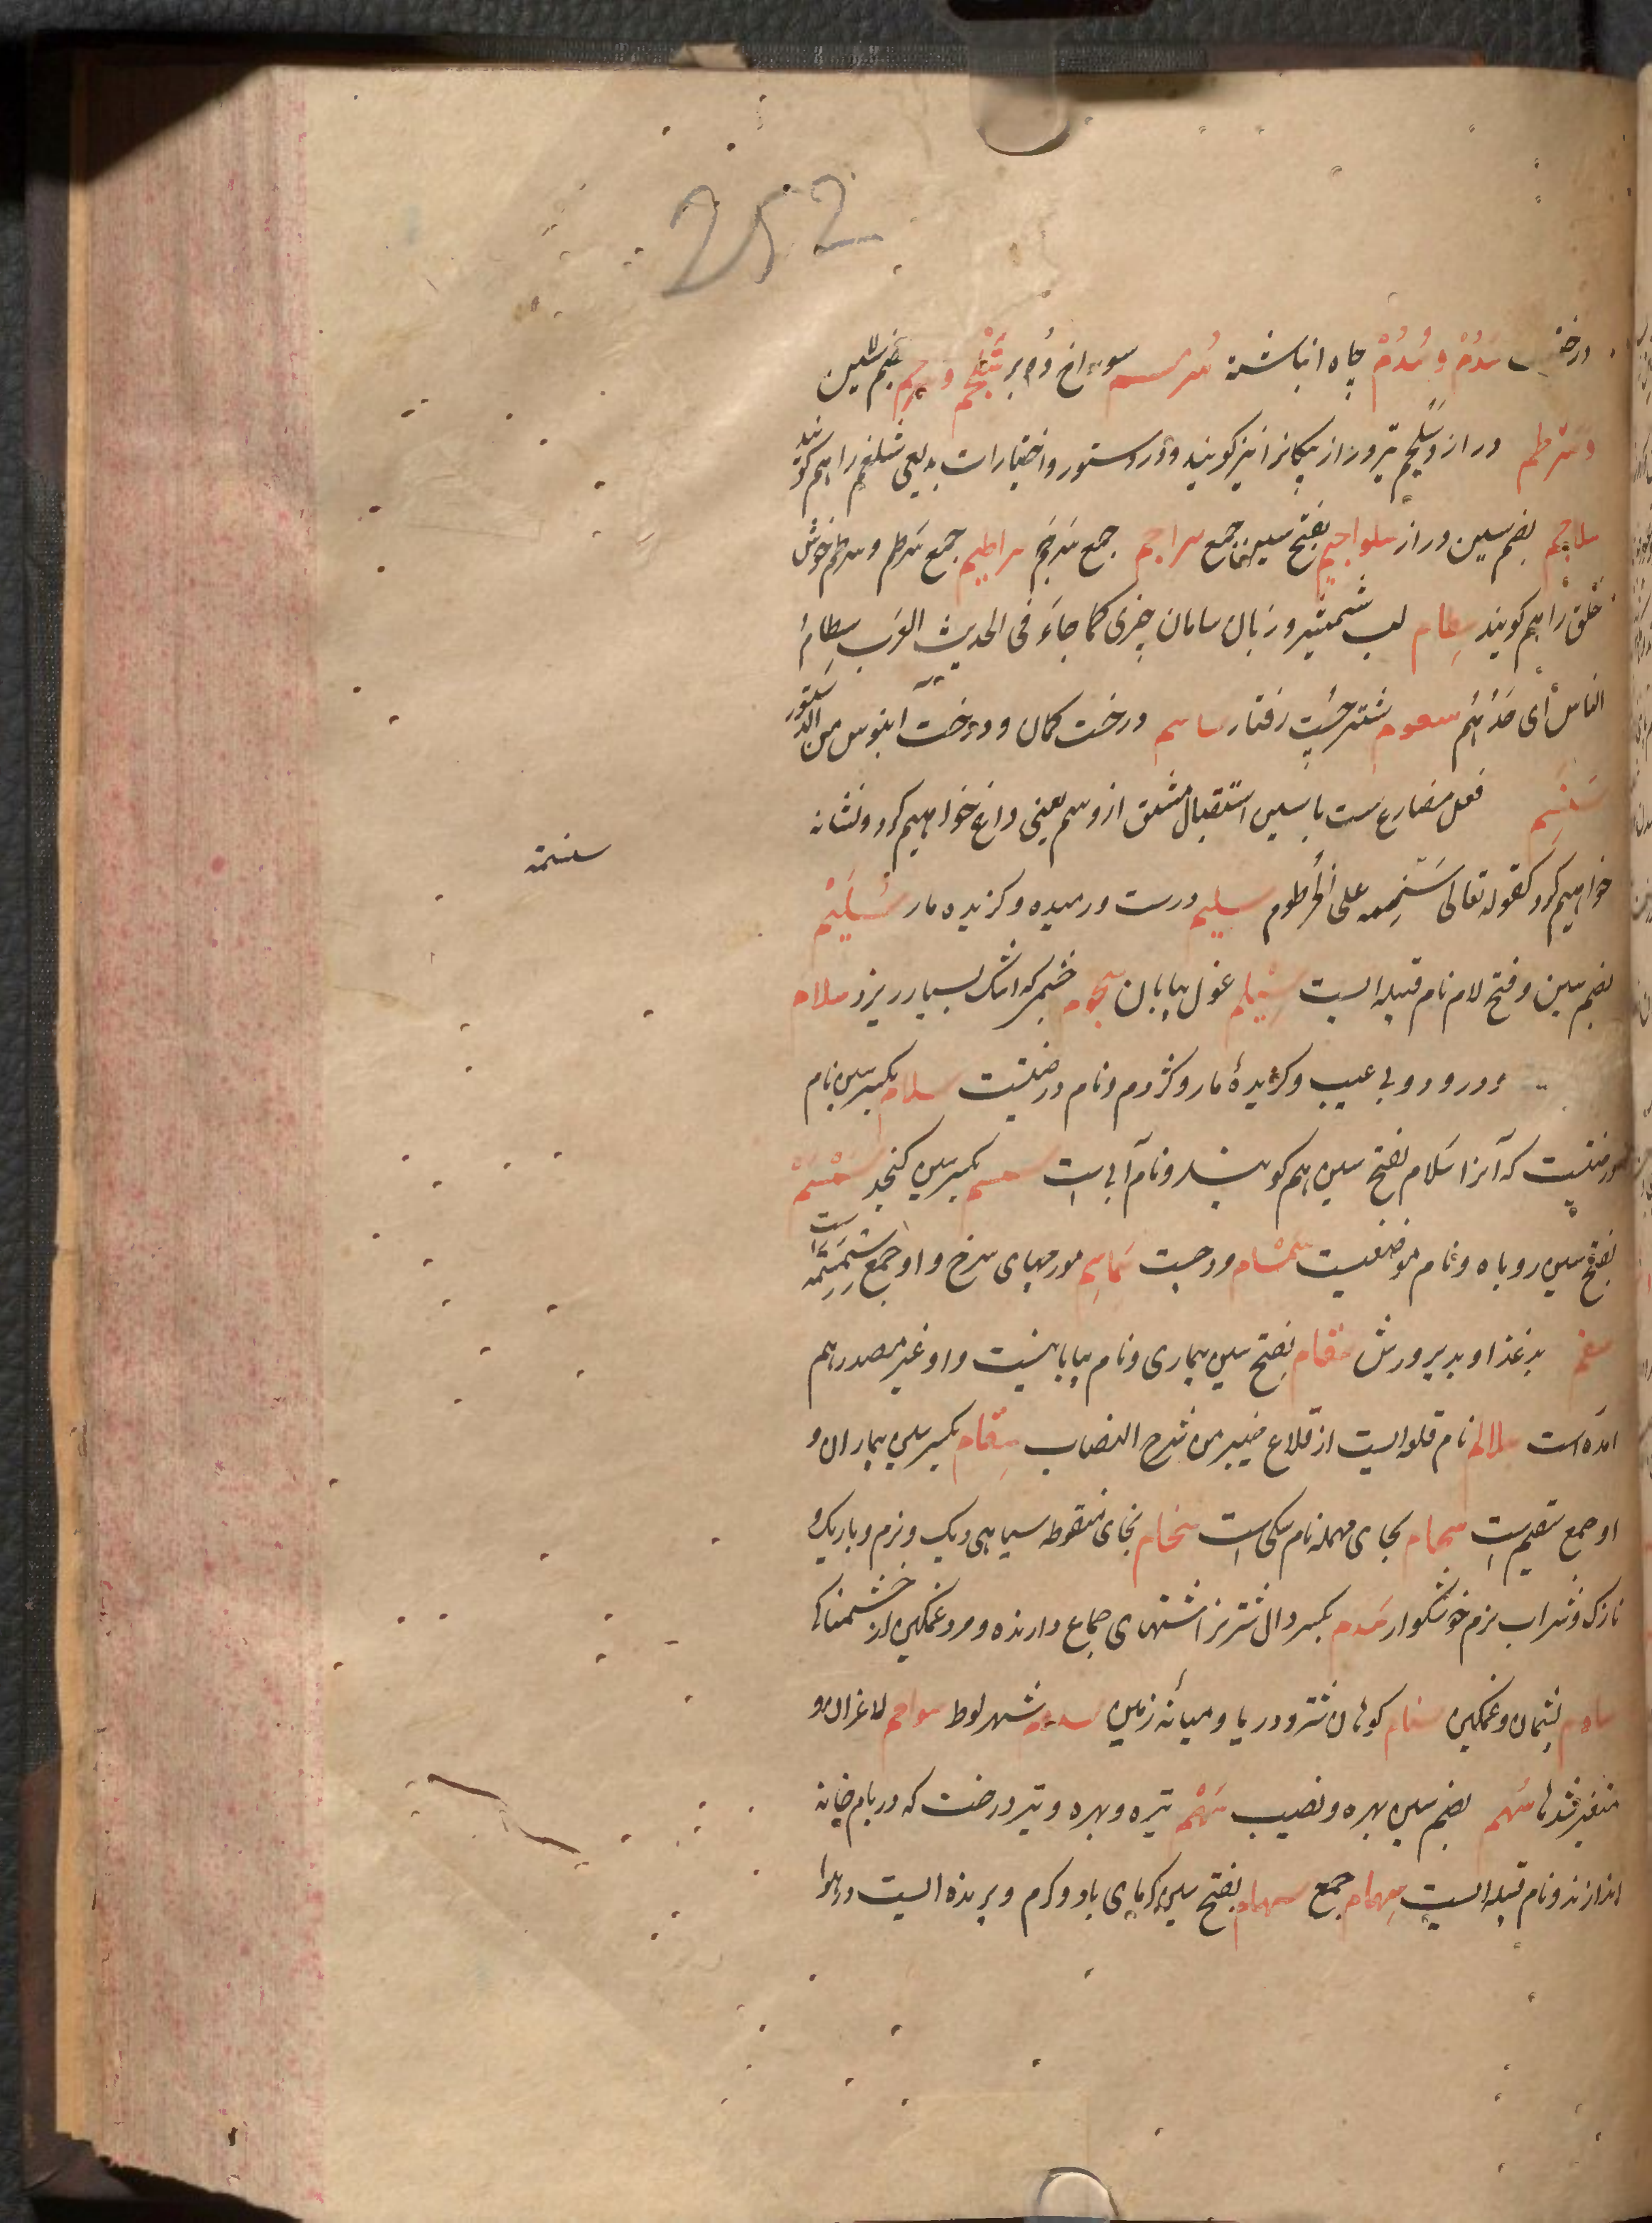 252
درخت سَدُمْ و سُدُمْ چاه انباشته سُرم سوراخ دُبر سَلْجَم و سرجم بفتح سین
و سرطم دراز و سلجم تیر دراز پیکانرا نیز گویند و در دستور و اختیارات بدیعی شلغم را هم گویند
سلاجم بضم سین دراز سلواجیم بفتح سین جمع سراجم جمع سرجم سراطیم جمع سرطم و سرطم خوش
خلق را هم گویند سِطام لب شمشیر و زبان سامان چیزی کما جاء فی الحدیث العرب سِطامُ
الناس أی حَدُّهُم سعوم شتر چُست رفتار ساسم درخت کمان و درخت آبنوس من الدستور
سَنَسِمُ فعل مضارع ست با سین استقبال مشتق از وسم یعنی داغ خواهیم کرد و نشانه
سنسمه
خواهیم کرد کقوله تعالی سَنَسِمه علی الخرطوم سلیم درست و رمیده و گزیده مار سُلَیْم
بضم سین و فتح لام نام قبیله ایست غول بیابان سجوم چشم که اشک بسیار ریزد سلام
درود و بی عیب و گزیدهٔ مار و کژدم و نام درختیست سلام بکسر سین نام
درختیست که آنرا سَلام بفتح سین هم گویند و نام آبی است سمسم بکسر سین کنجد سَمْسَمْ
بفتح سین روباه و نام موضعیست سَمْسام ودجست سَماسِم مورچهای سرخ و او جمع سِمْسِمَه است
سغم بد غذا و بد پرورش سقام بفتح سین بیماری و نام بیابانیست و او غیر مصدر هم
آمده است سلالم نام قلعه ایست از قلاع خیبر من شرح النصاب سِقام بکسر سین بیماران و
او جمع سقیم است سحام بحای مهمله نام سگی است سخام بخای منقوطه سیاهی دیک و نرم و باریک و
نازک و شراب نرم خوشگوار سَدِم بکسر دال شتر نر اشتهای جماع دارنده و مرد غمگین از خشمناک
سادم پشیمان و غمگین سنام کوهان شتر و دریا و میانه زمین سدوم شهر لوط سواهم لاغران و
متغیر شدها سُهم بضم سین بهره و نصیب سَهْم تیر و بهره و تیر درخت که در بام خانه
اندازند و نام قبیله ایست سِهام جمع سهام بفتح سین گرمای باد و گرم و پرنده ایست در هوا